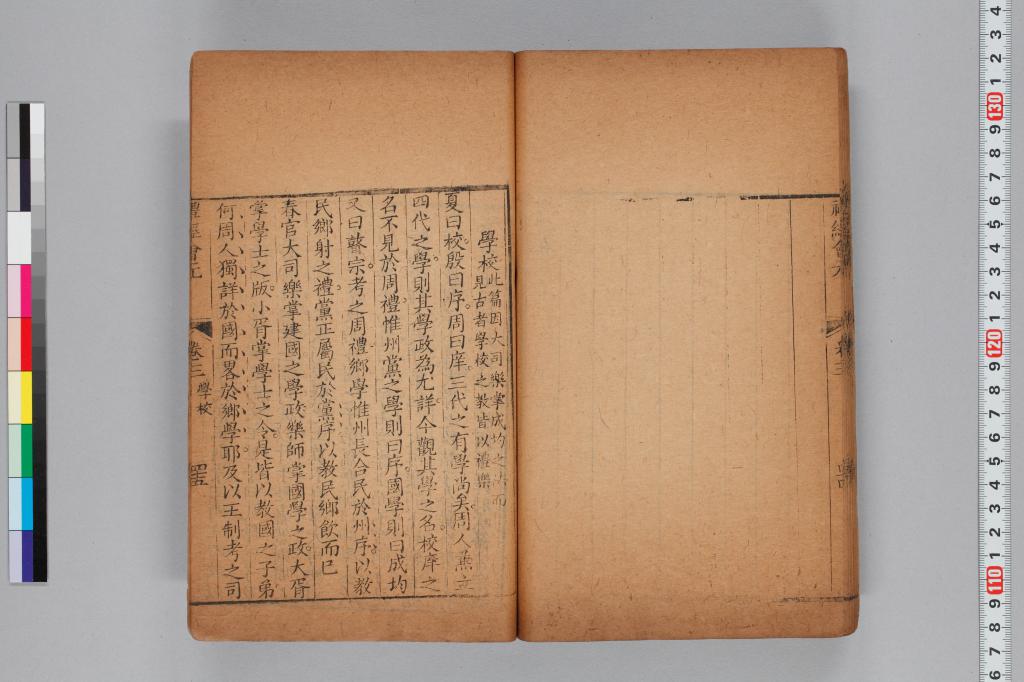 禮經會元
卷三
學校此篇因大司樂掌成均之法而
見古者學校之教皆以禮樂
夏曰校殷曰序周曰庠三代之有學尚矣周人兼立
四代之學則其學政為尤詳今觀其學之名校庠之
名不見於周禮惟州黨之學則曰序國學則曰成均
又曰瞽宗考之周禮鄉學惟州長合民於州序以教
民鄉射之禮黨正屬民於黨序以教民鄉飲而已
春官大司樂掌建國之學政樂師掌國學之政大胥
掌學士之版小胥掌學士之令是皆以教國之子弟
何周人獨詳於國而畧於鄉學耶及以王制考之司
禮經會元
卷三 學校